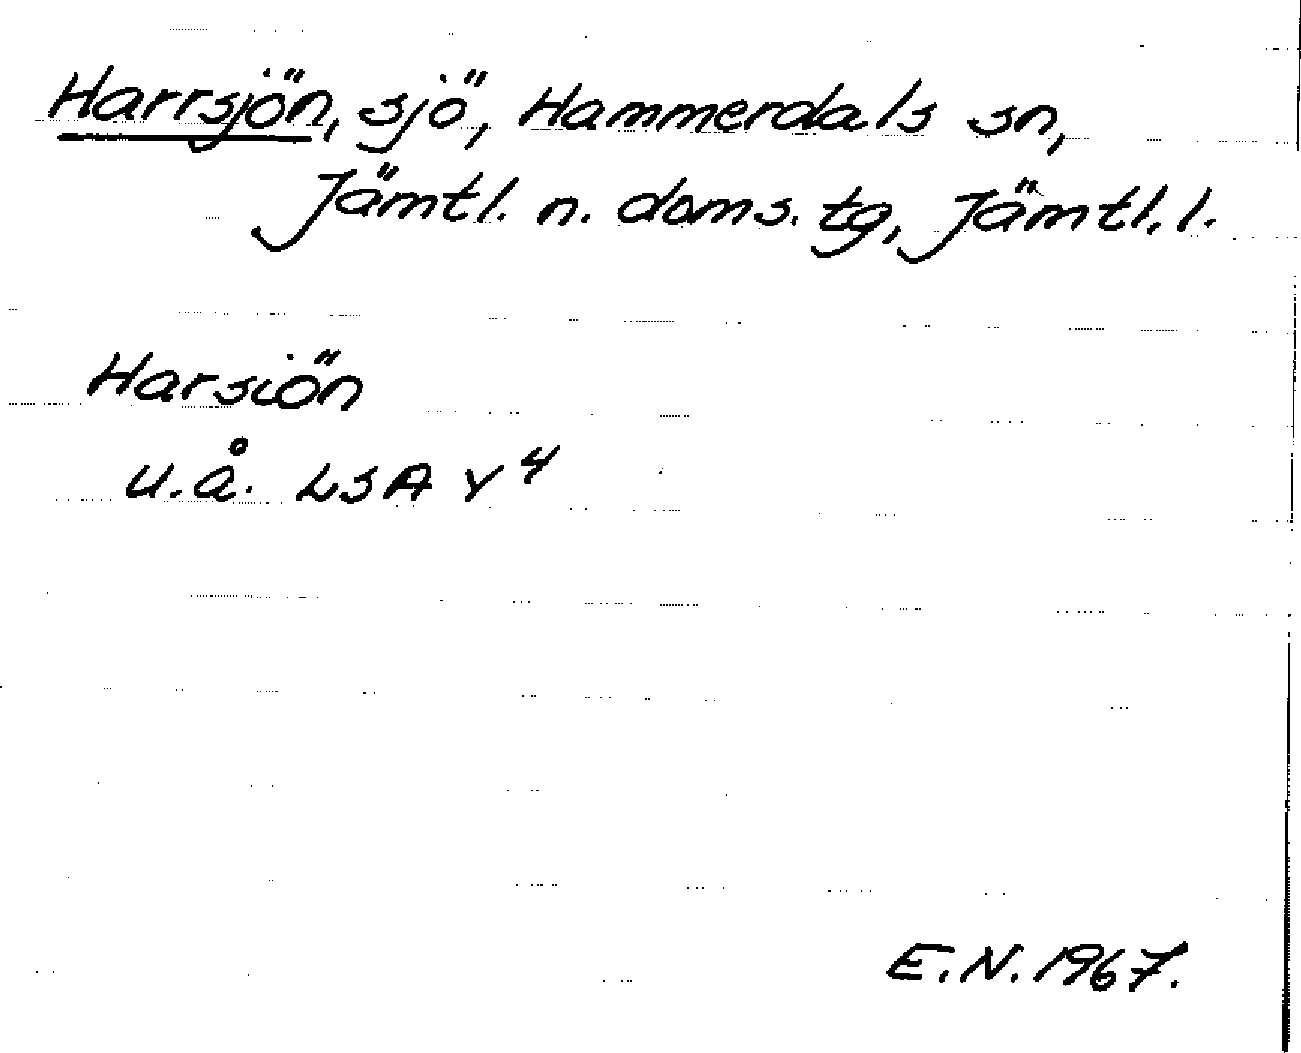 Harrsjön, sjö, Hammerdals sn,
Jämtl. n. doms. tg, Jämtl. l.
Harsiön
u.å. LSA Y 4
E.N. 1967.